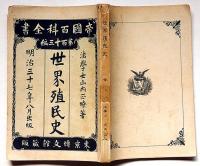 帝國百科全書
第百十三編
法學士山内正瞭著
世界殖民史
明治三十七年八月出版
東京 博文館藏版
世界殖民史